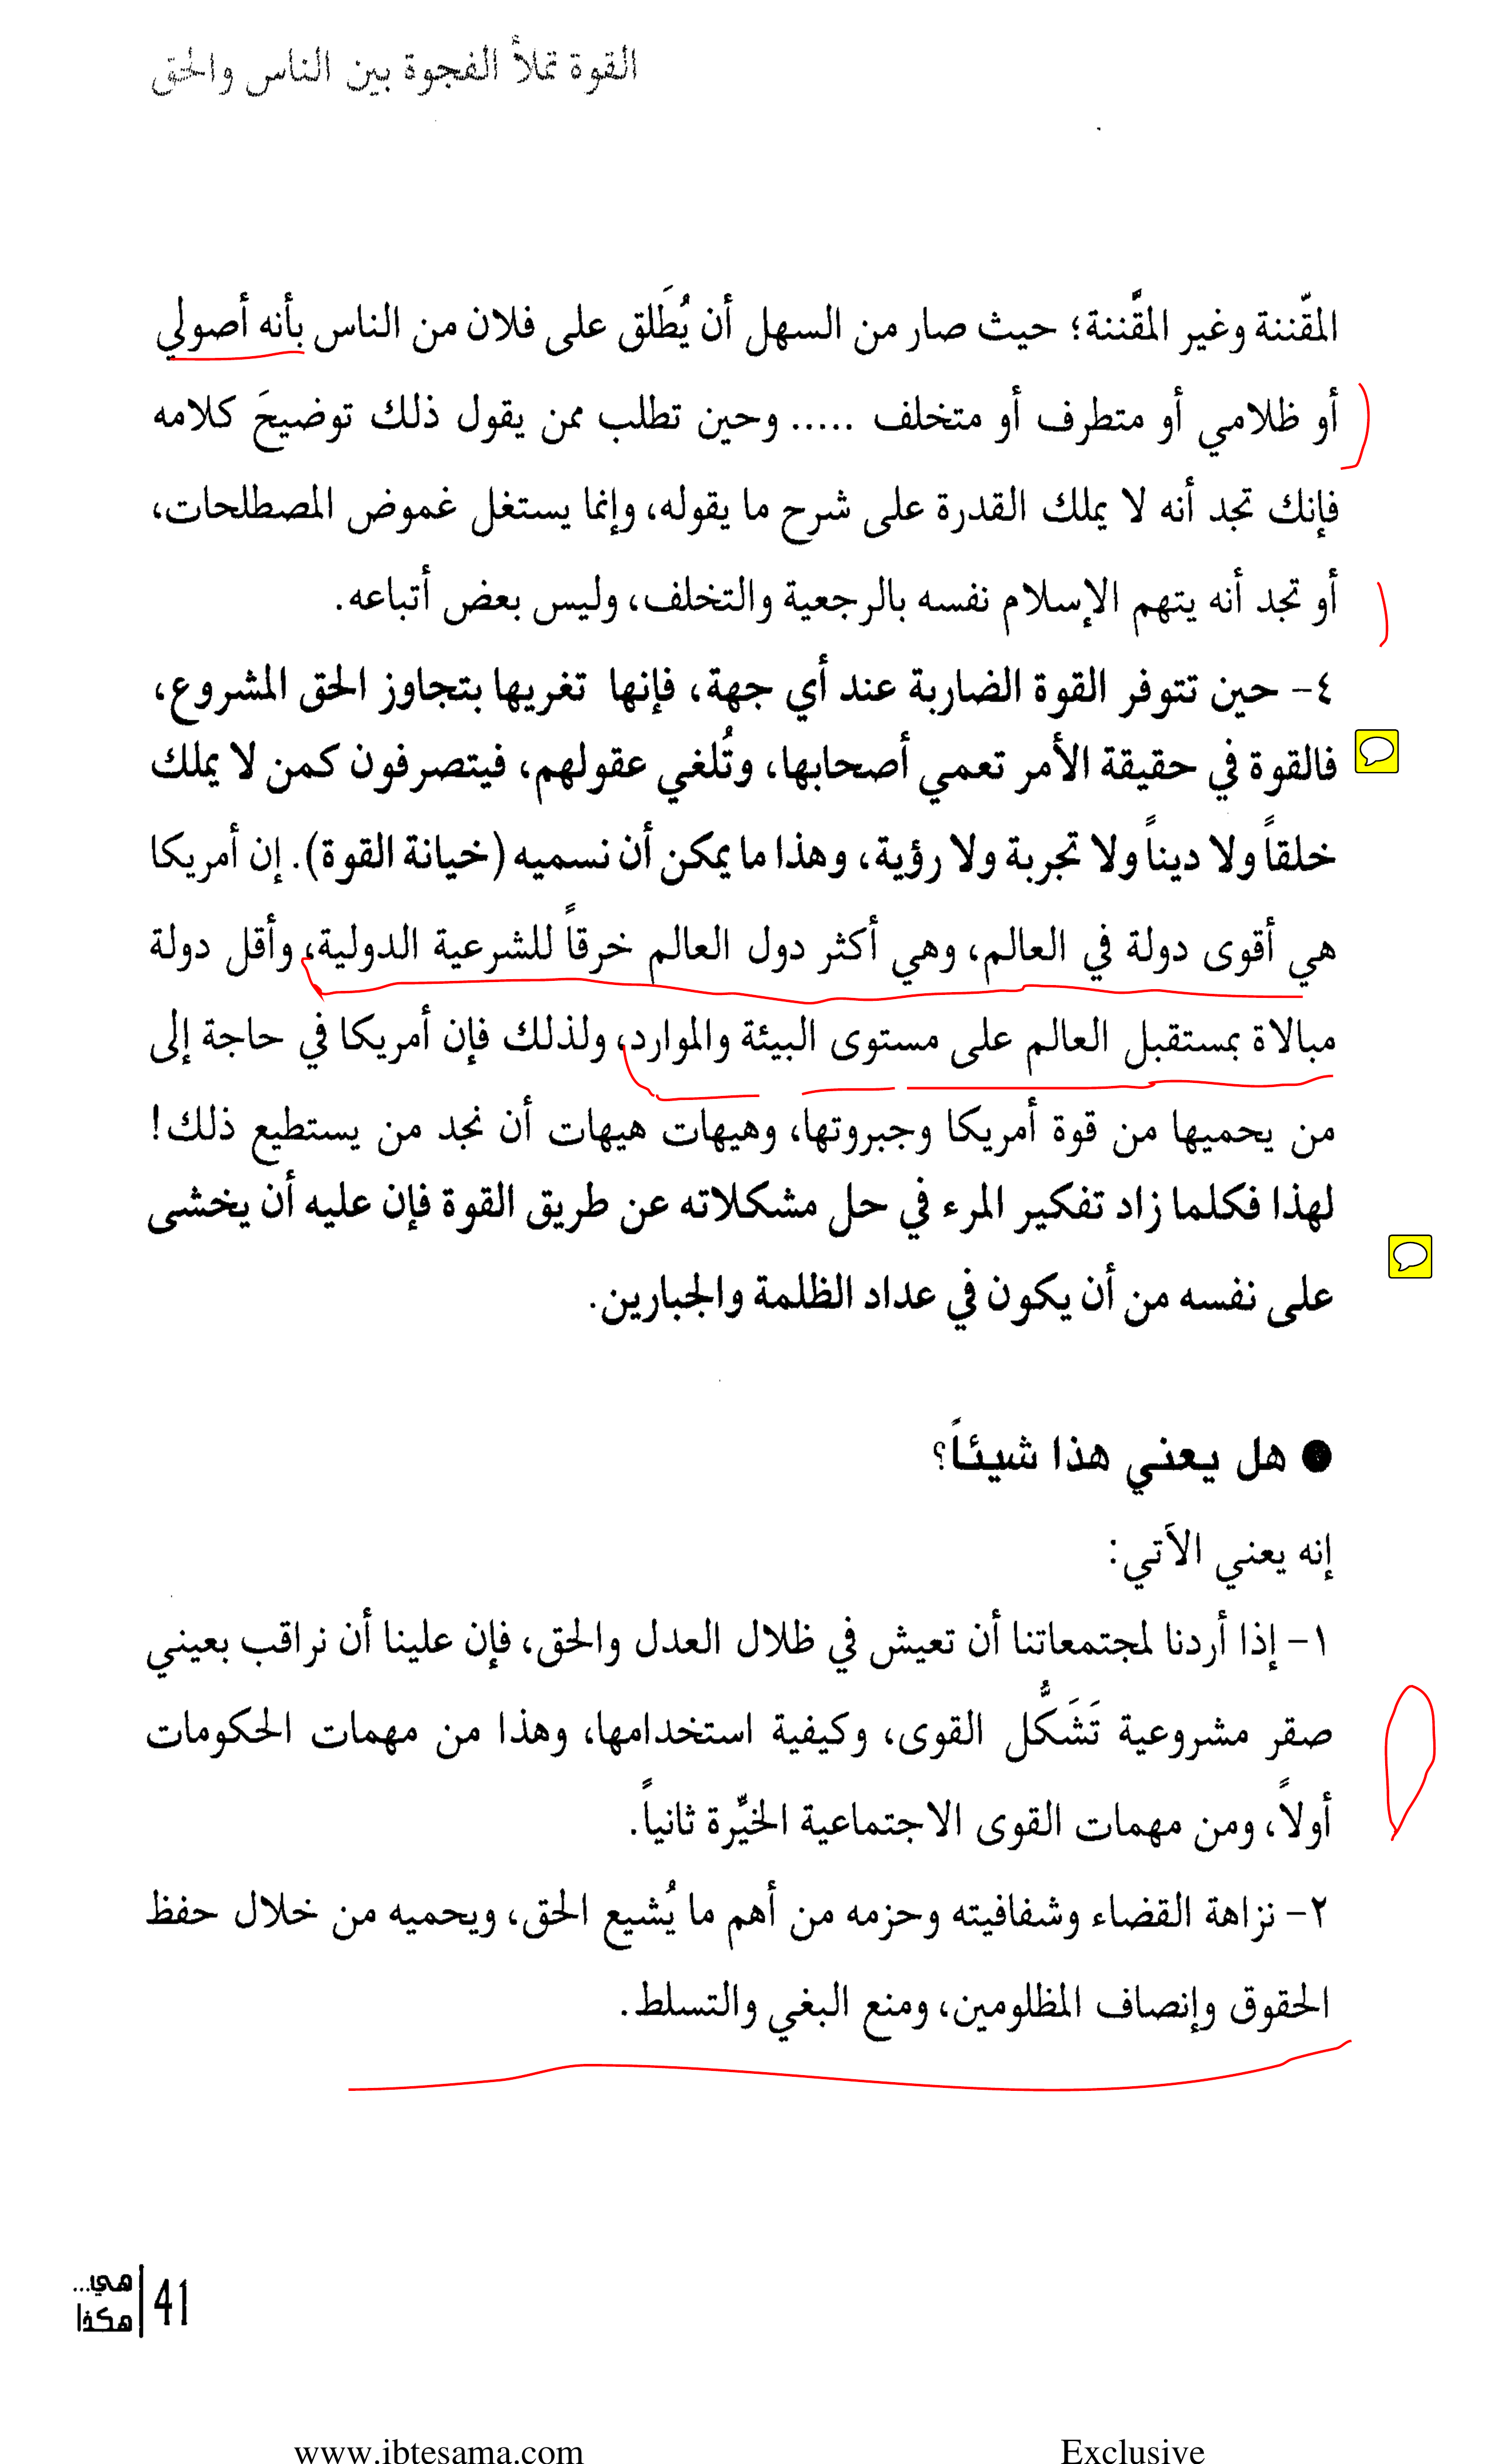 القوة تملأ الفجوة بين الناس والحق
المقّننة وغير المقَّننة؛ حيث صار من السهل أن يُطَلق على فلان من الناس بأنه أصولي
أو ظلامي أو متطرف أو متخلف ..... وحين تطلب ممن يقول ذلك توضيحَ كلامه
فإنك تجد أنه لا يملك القدرة على شرح ما يقوله، وإنما يستغل غموض المصطلحات،
أو تجد أنه يتهم الإسلام نفسه بالرجعية والتخلف، وليس بعض أتباعه.
٤- حين تتوفر القوة الضاربة عند أي جهة، فإنها تغريها بتجاوز الحق المشروع،
فالقوة في حقيقة الأمر تعمي أصحابها، وتُلغي عقولهم، فيتصرفون كمن لا يملك
خلقاً ولا ديناً ولا تجربة ولا رؤية، وهذا ما يمكن أن نسميه (خيانة القوة). إن أمريكا
هي أقوى دولة في العالم، وهي أكثر دول العالم خرقاً للشرعية الدولية، وأقل دولة
مبالاة بمستقبل العالم على مستوى البيئة والموارد، ولذلك فإن أمريكا في حاجة إلى
من يحميها من قوة أمريكا وجبروتها، وهيهات هيهات أن نجد من يستطيع ذلك!
لهذا فكلما زاد تفكير المرء في حل مشكلاته عن طريق القوة فإن عليه أن يخشى
على نفسه من أن يكون في عداد الظلمة والجبارين.
● هل يعني هذا شيئاً؟
إنه يعني الآتي:
١- إذا أردنا لمجتمعاتنا أن تعيش في ظلال العدل والحق، فإن علينا أن نراقب بعيني
صقر مشروعية تَشَكُّل القوى، وكيفية استخدامها، وهذا من مهمات الحكومات
أولاً، ومن مهمات القوى الاجتماعية الخيِّرة ثانياً.
٢- نزاهة القضاء وشفافيته وحزمه من أهم ما يُشيع الحق، ويحميه من خلال حفظ
الحقوق وإنصاف المظلومين، ومنع البغي والتسلط.
41
هي...
هكذا
www.ibtesama.com Exclusive